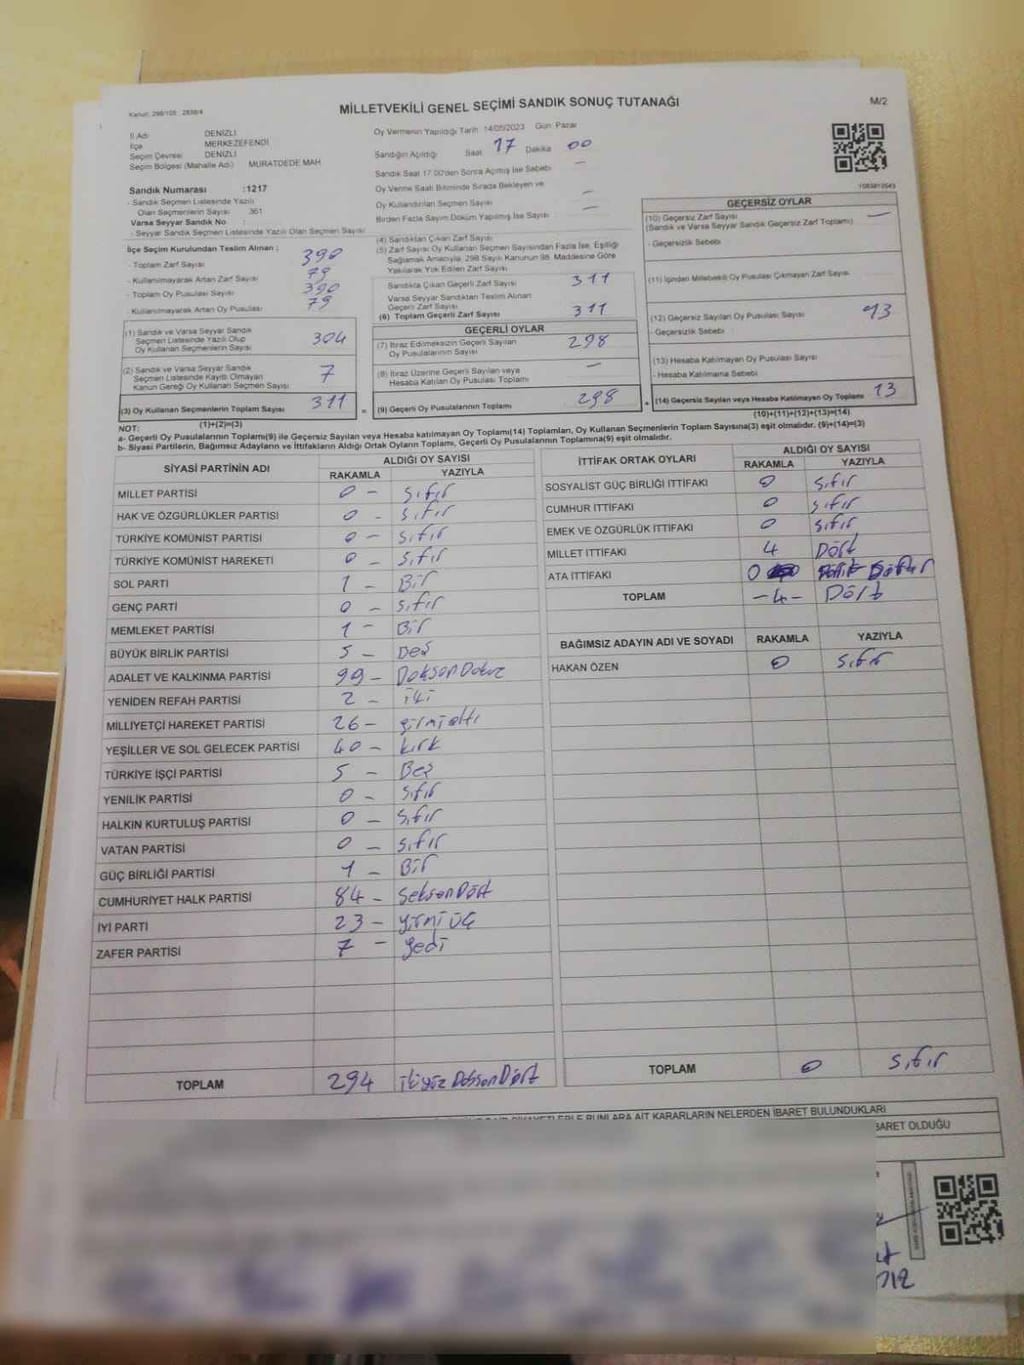 Kanun: 298/105 : 2839/4
MİLLETVEKİLİ GENEL SEÇİMİ SANDIK SONUÇ TUTANAĞI
M/2
İl Adı DENİZLİ
İlçe MERKEZEFENDİ
Seçim Çevresi DENİZLİ
Seçim Bölgesi (Mahalle Adı) MURATDEDE MAH
Sandık Numarası :1217
- Sandık Seçmen Listesinde Yazılı
Olan Seçmenlerin Sayısı 361
Varsa Seyyar Sandık No :
- Seyyar Sandık Seçmen Listesinde Yazılı Olan Seçmen Sayısı
İlçe Seçim Kurulundan Teslim Alınan :
- Toplam Zarf Sayısı 390
- Kullanılmayarak Artan Zarf Sayısı 79
- Toplam Oy Pusulası Sayısı 390
- Kullanılmayarak Artan Oy Pusulası 79
(1) Sandık ve Varsa Seyyar Sandık
Seçmen Listesinde Yazılı Olup
Oy Kullanan Seçmenlerin Sayısı 304
(2) Sandık ve Varsa Seyyar Sandık
Seçmen Listesinde Kayıtlı Olmayan
Kanun Gereği Oy Kullanan Seçmen Sayısı 7
(3) Oy Kullanan Seçmenlerin Toplam Sayısı 311
(1)+(2)=(3)
Oy Vermenin Yapıldığı Tarih :14/05/2023 Gün :Pazar
Sandığın Açıldığı Saat 17 Dakika 00
Sandık Saat 17.00'den Sonra Açılmış İse Sebebi —
Oy Verme Saati Bitiminde Sırada Bekleyen ve
Oy Kullandırılan Seçmen Sayısı —
Birden Fazla Sayım Döküm Yapılmış İse Sayısı —
(4) Sandıktan Çıkan Zarf Sayısı
(5) Zarf Sayısı Oy Kullanan Seçmen Sayısından Fazla İse, Eşitliği
Sağlamak Amacıyla, 298 Sayılı Kanunun 98. Maddesine Göre
Yakılarak Yok Edilen Zarf Sayısı
Sandıkta Çıkan Geçerli Zarf Sayısı 311
Varsa Seyyar Sandıktan Teslim Alınan
Geçerli Zarf Sayısı
(6) Toplam Geçerli Zarf Sayısı 311
GEÇERLİ OYLAR
(7) İtiraz Edilmeksizin Geçerli Sayılan
Oy Pusulalarının Sayısı 298
(8) İtiraz Üzerine Geçerli Sayılan veya
Hesaba Katılan Oy Pusulası Toplamı —
(9) Geçerli Oy Pusulalarının Toplamı 298
1083813543
GEÇERSİZ OYLAR
(10) Geçersiz Zarf Sayısı —
(Sandık ve Varsa Seyyar Sandık Geçersiz Zarf Toplamı)
- Geçersizlik Sebebi
(11) İçinden Milletvekili Oy Pusulası Çıkmayan Zarf Sayısı
(12) Geçersiz Sayılan Oy Pusulası Sayısı 13
- Geçersizlik Sebebi
(13) Hesaba Katılmayan Oy Pusulası Sayısı
- Hesaba Katılmama Sebebi
(14) Geçersiz Sayılan veya Hesaba Katılmayan Oy Toplamı 13
(10)+(11)+(12)+(13)=(14)
NOT:
a- Geçerli Oy Pusulalarının Toplamı(9) ile Geçersiz Sayılan veya Hesaba katılmayan Oy Toplamı(14) Toplamları, Oy Kullanan Seçmenlerin Toplam Sayısına(3) eşit olmalıdır. (9)+(14)=(3)
b- Siyasi Partilerin, Bağımsız Adayların ve İttifakların Aldığı Ortak Oyların Toplamı, Geçerli Oy Pusulalarının Toplamına(9) eşit olmalıdır.
SİYASİ PARTİNİN ADI ALDIĞI OY SAYISI
RAKAMLA YAZIYLA
MİLLET PARTİSİ 0 - Sıfır
HAK VE ÖZGÜRLÜKLER PARTİSİ 0 - Sıfır
TÜRKİYE KOMÜNİST PARTİSİ 0 - Sıfır
TÜRKİYE KOMÜNİST HAREKETİ 0 - Sıfır
SOL PARTİ 1 - Bir
GENÇ PARTİ 0 - Sıfır
MEMLEKET PARTİSİ 1 - Bir
BÜYÜK BİRLİK PARTİSİ 5 - Beş
ADALET VE KALKINMA PARTİSİ 99 - Doksan Dokuz
YENİDEN REFAH PARTİSİ 2 - İki
MİLLİYETÇİ HAREKET PARTİSİ 26 - Yirmi altı
YEŞİLLER VE SOL GELECEK PARTİSİ 40 - Kırk
TÜRKİYE İŞÇİ PARTİSİ 5 - Beş
YENİLİK PARTİSİ 0 - Sıfır
HALKIN KURTULUŞ PARTİSİ 0 - Sıfır
VATAN PARTİSİ 0 - Sıfır
GÜÇ BİRLİĞİ PARTİSİ 1 - Bir
CUMHURİYET HALK PARTİSİ 84 - Seksen Dört
İYİ PARTİ 23 - Yirmi üç
ZAFER PARTİSİ 7 - Yedi
TOPLAM 294 İkiyüz Doksan Dört
İTTİFAK ORTAK OYLARI ALDIĞI OY SAYISI
RAKAMLA YAZIYLA
SOSYALİST GÜÇ BİRLİĞİ İTTİFAKI 0 Sıfır
CUMHUR İTTİFAKI 0 Sıfır
EMEK VE ÖZGÜRLÜK İTTİFAKI 0 Sıfır
MİLLET İTTİFAKI 4 Dört
ATA İTTİFAKI 0
TOPLAM -4- Dört
BAĞIMSIZ ADAYIN ADI VE SOYADI RAKAMLA YAZIYLA
HAKAN ÖZEN 0 Sıfır
TOPLAM 0 Sıfır
BUNLARA AİT KARARLARIN NELERDEN İBARET BULUNDUKLARI
BARET OLDUĞU